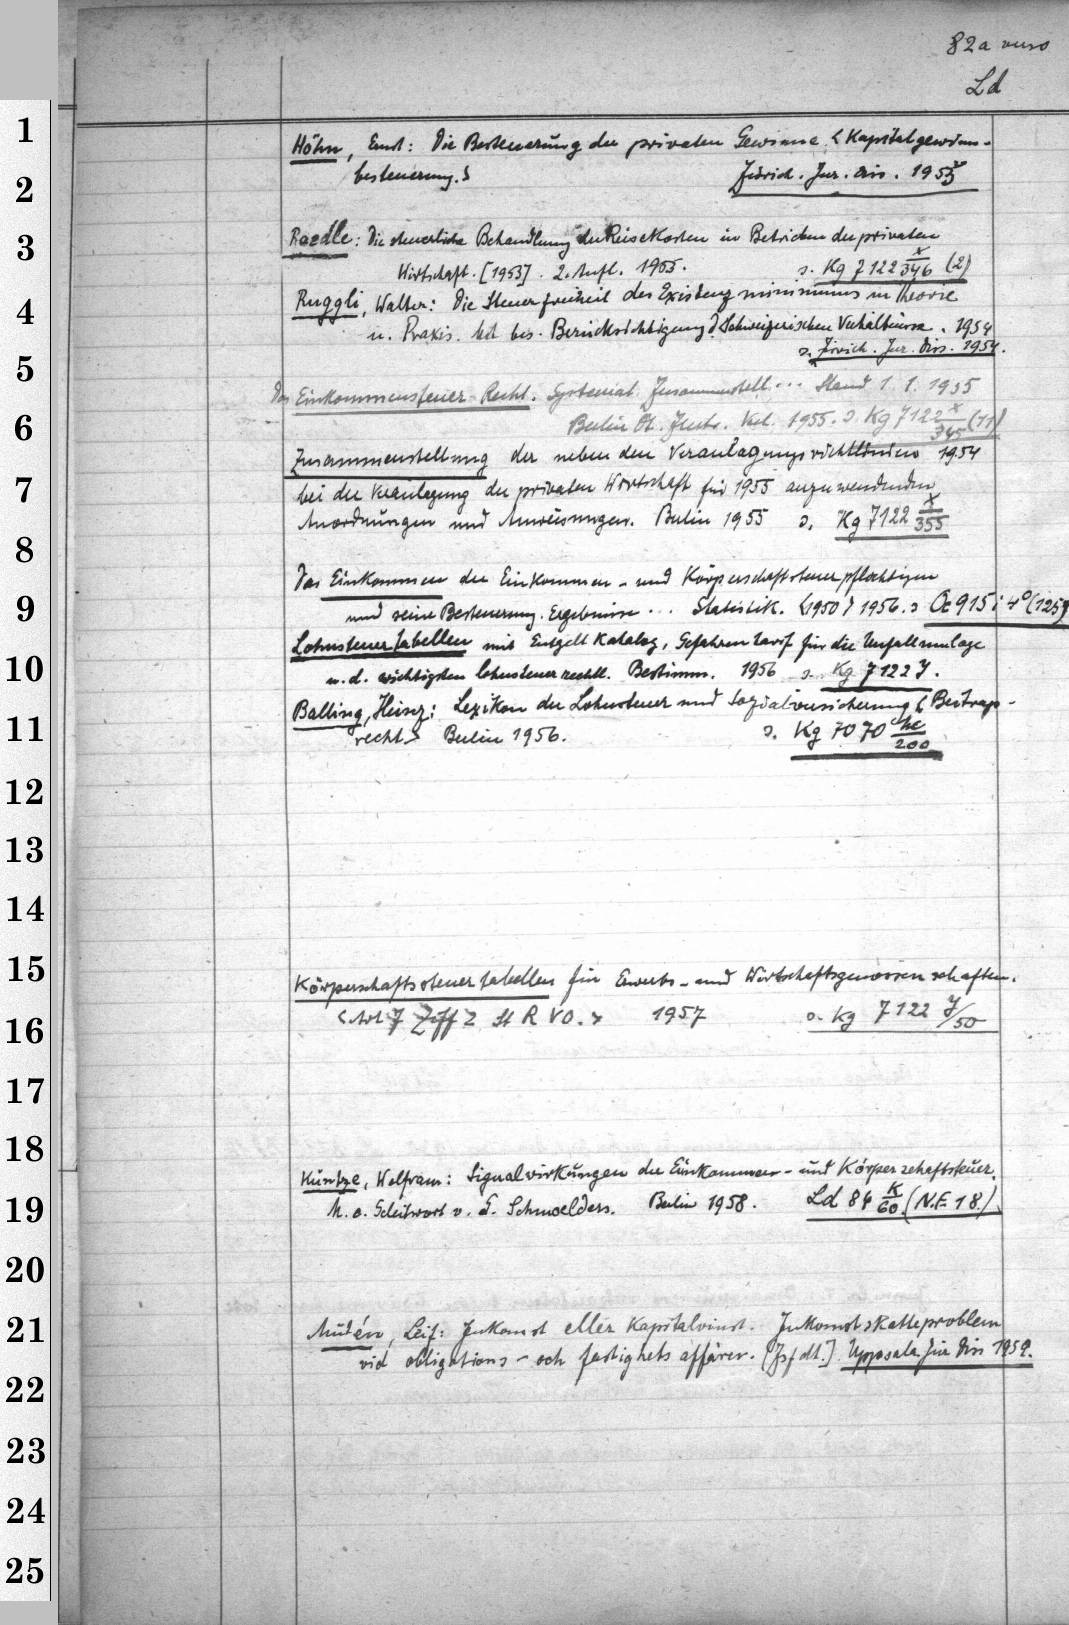 82a verso
Ld
1 Höhn, Ernst: Die Besteuerung der privaten Gewinne. <Kapitalgewinn-
2 besteuerung.> Zürich. Jur. Diss. 1955
3 Raedle: Die steuerliche Behandlung der Reisekosten in Betrieben der privaten
Wirtschaft. [1953]. 2. Aufl. 1955. s. Kg 7122 x/346 (2)
4 Ruggli, Walter: Die Steuerfreiheit des Existenzminimums in Theorie
u. Praxis. Mit bes. Berücksichtigung d. Schweizerischen Verhältnisse. 1954
5 s. Zürich. Jur. Diss. 1954.
Das Einkommensteuer-Recht. Systemat. Zusammenstell... Stand 1.1.1955
6 Berlin Dt. Zentr. Verl. 1955. s. Kg 7122 x/345 (11)
Zusammenstellung der neben den Veranlagungsrichtlinien 1954
7 bei der Veranlagung der privaten Wirtschaft für 1955 anzuwendenden
Anordnungen und Anweisungen. Berlin 1955 s. Kg 7122 x/355
8
Das Einkommen der Einkommen- und Körperschaftsteuerpflichtigen
9 und seine Besteuerung. Ergebnisse ... Statistik. <1950> 1956. s Oc 915i 4° (125)
Lohnsteuertabellen mit Entgelt Katalog, Gefahrentarif für die Unfallumlage
10 u. d. wichtigsten lohnsteuerrechtl. Bestimm. 1956 s. Kg 7122 y.
Balling, Heinz: Lexikon der Lohnsteuer und Sozialversicherung <Beitrags-
11 recht> Berlin 1956. s. Kg 7070 hc/200
12
13
14
15 Körperschaftssteuertabellen für Erwerbs- und Wirtschaftsgenossenschaften.
16 <Art 7 Ziff 2 St R VO.> 1957 s. Kg 7122 y/50
17
18
Küntze, Wolfram: Signalwirkungen der Einkommen- und Körperschaftsteuer.
19 M. e. Geleitwort v. G. Schmoelders. Berlin 1958. Ld 84 K/60 (N.F. 18.)
20
21 Mutén, Leif: Inkomst eller Kapitalvinst. Inkomstskatteproblem
vid obligations- och fastighetsaffärer. Uppsala Jur Diss 1959.
22
23
24
25